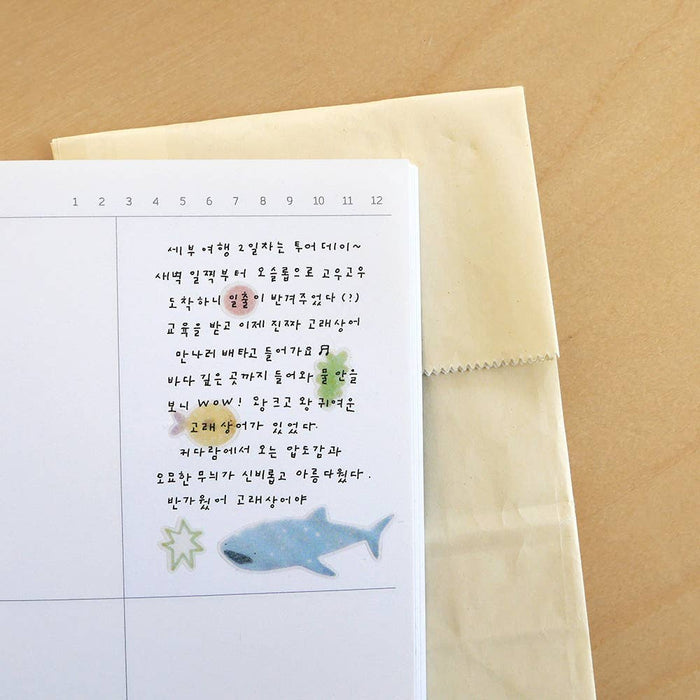 1 2 3 4 5 6 7 8 9 10 11 12
세부여행 2일차는 투어데이~
새벽 일찍부터 오슬롭으로 고우고우
도착하니 일출이 반겨주었다(?)
교육을 받고 이제 진짜 고래상어
만나러 배타고 들어가요♬
바다 깊은 곳까지 들어와 물 안을
보니 WOW! 왕크고 왕 귀여운
고래상어가 있었다.
커다람에서 오는 압도감과
오묘한 무늬가 신비롭고 아름다웠다.
반가웠어 고래상어야